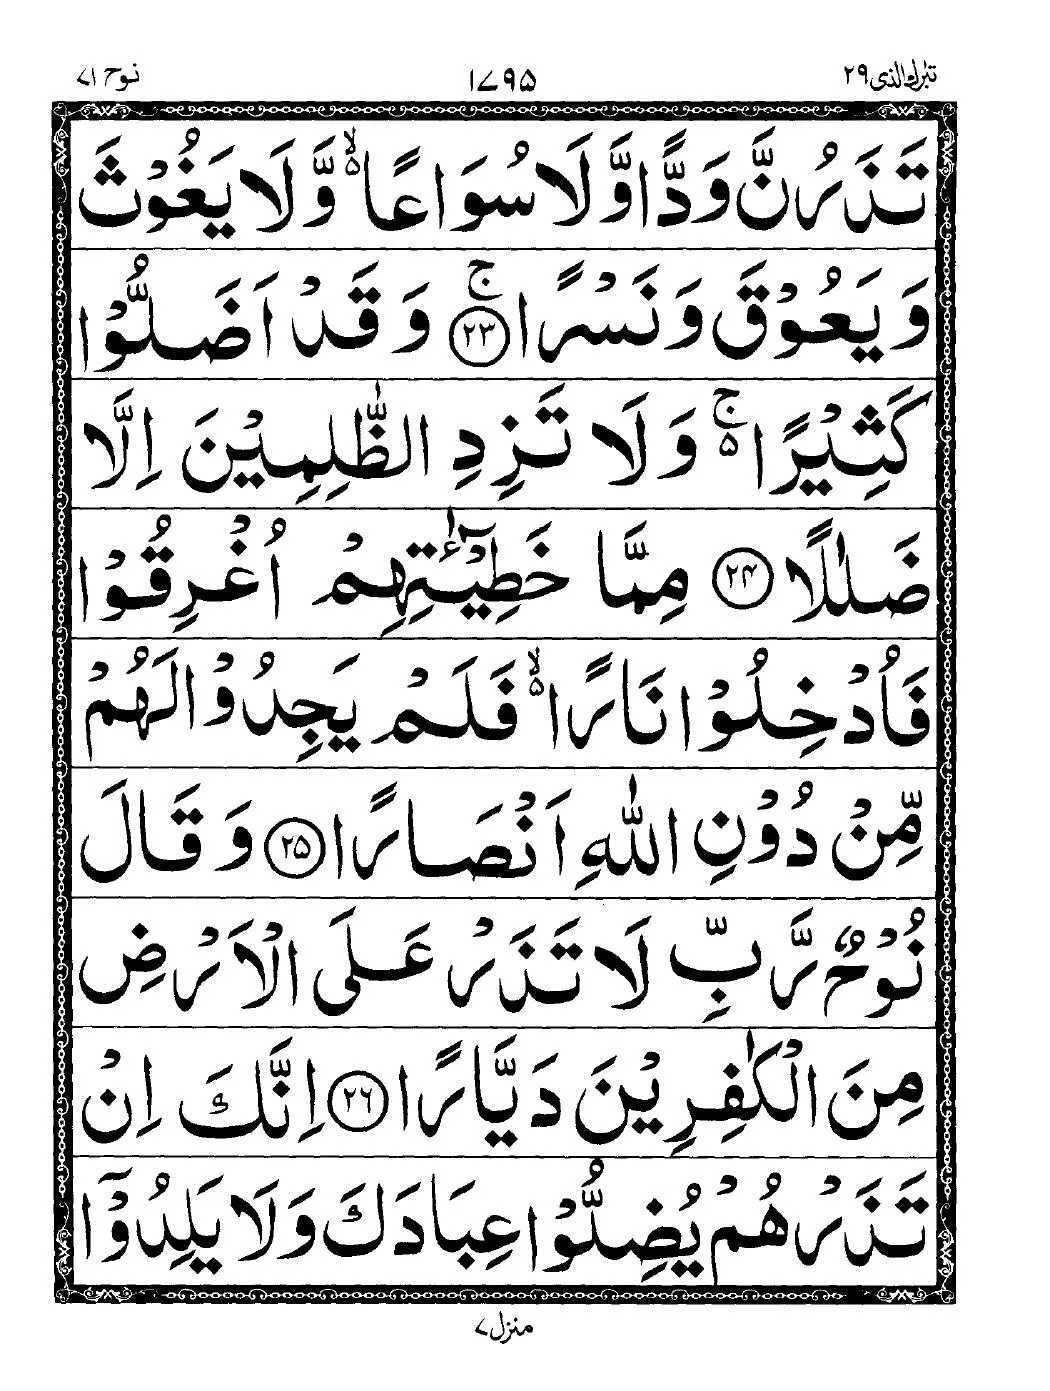 تبٰرك الذی ۲۹ ۱۷۹۵ نوح ۷۱
تَذَرُنَّ وَدًّا وَّلَا سُوَاعًا ۙ۬ وَّلَا يَغُوْثَ
وَيَعُوْقَ وَنَسْرًا ۚ ﴿۲۳﴾ وَقَدْ اَضَلُّوْا
كَثِيْرًا ۚ۬ وَلَا تَزِدِ الظّٰلِمِيْنَ اِلَّا
ضَلٰلًا ﴿۲۴﴾ مِمَّا خَطِيْٓــٰٔتِهِمْ اُغْرِقُوْا
فَاُدْخِلُوْا نَارًا ۙ۬ فَلَمْ يَجِدُوْا لَهُمْ
مِّنْ دُوْنِ اللّٰهِ اَنْصَارًا ﴿۲۵﴾ وَقَالَ
نُوْحٌ رَّبِّ لَا تَذَرْ عَلَى الْاَرْضِ
مِنَ الْكٰفِرِيْنَ دَيَّارًا ﴿۲۶﴾ اِنَّكَ اِنْ
تَذَرْهُمْ يُضِلُّوْا عِبَادَكَ وَلَا يَلِدُوْٓا
منزل ۷